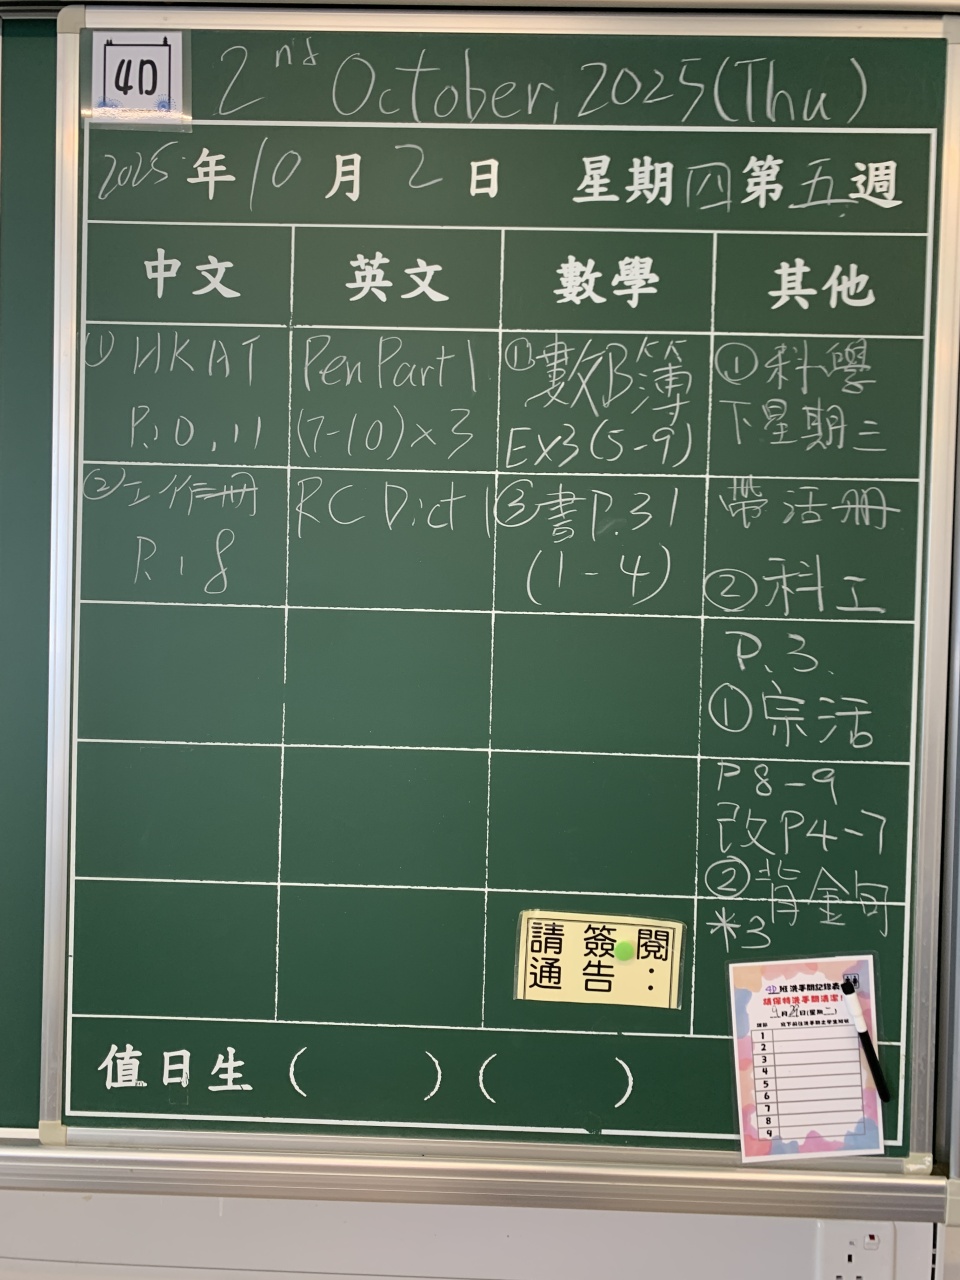 4D
2nd October, 2025(Thu)
2025年10月2日 星期四第五週
中文 英文 數學 其他
① HKAT
P.10,11
② 工作冊
P.18
Pen Part 1
(7-10)×3
RC Dict 1
① 數B簿
EX3(5-9)
③ 書P.31
(1-4)
① 科學
下星期三
帶活册
② 科工
P.3.
① 宗活
P8-9
改P4-7
② 背金句
*3
請簽閱
通告:
4D班洗手間記錄表
請保持洗手間清潔!
1
2
3
4
5
6
7
8
9
值日生 ( ) ( )